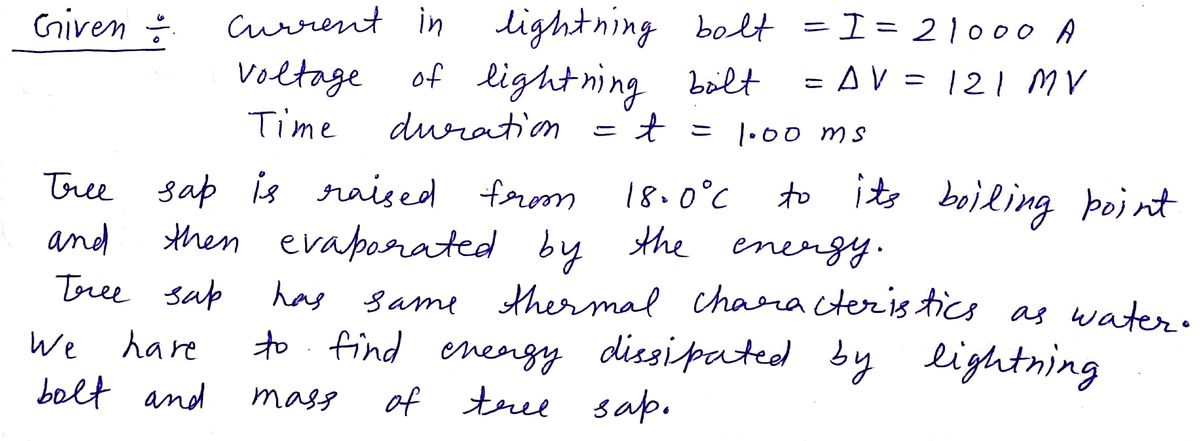 Given ÷ Current in lightning bolt = I = 21000 A
Voltage of lightning bolt = ΔV = 121 MV
Time duration = t = 1.00 ms
Tree sap is raised from 18.0°C to its boiling point
and then evaporated by the energy.
Tree sap has same thermal characteristics as water.
We have to find energy dissipated by lightning
bolt and mass of tree sap.